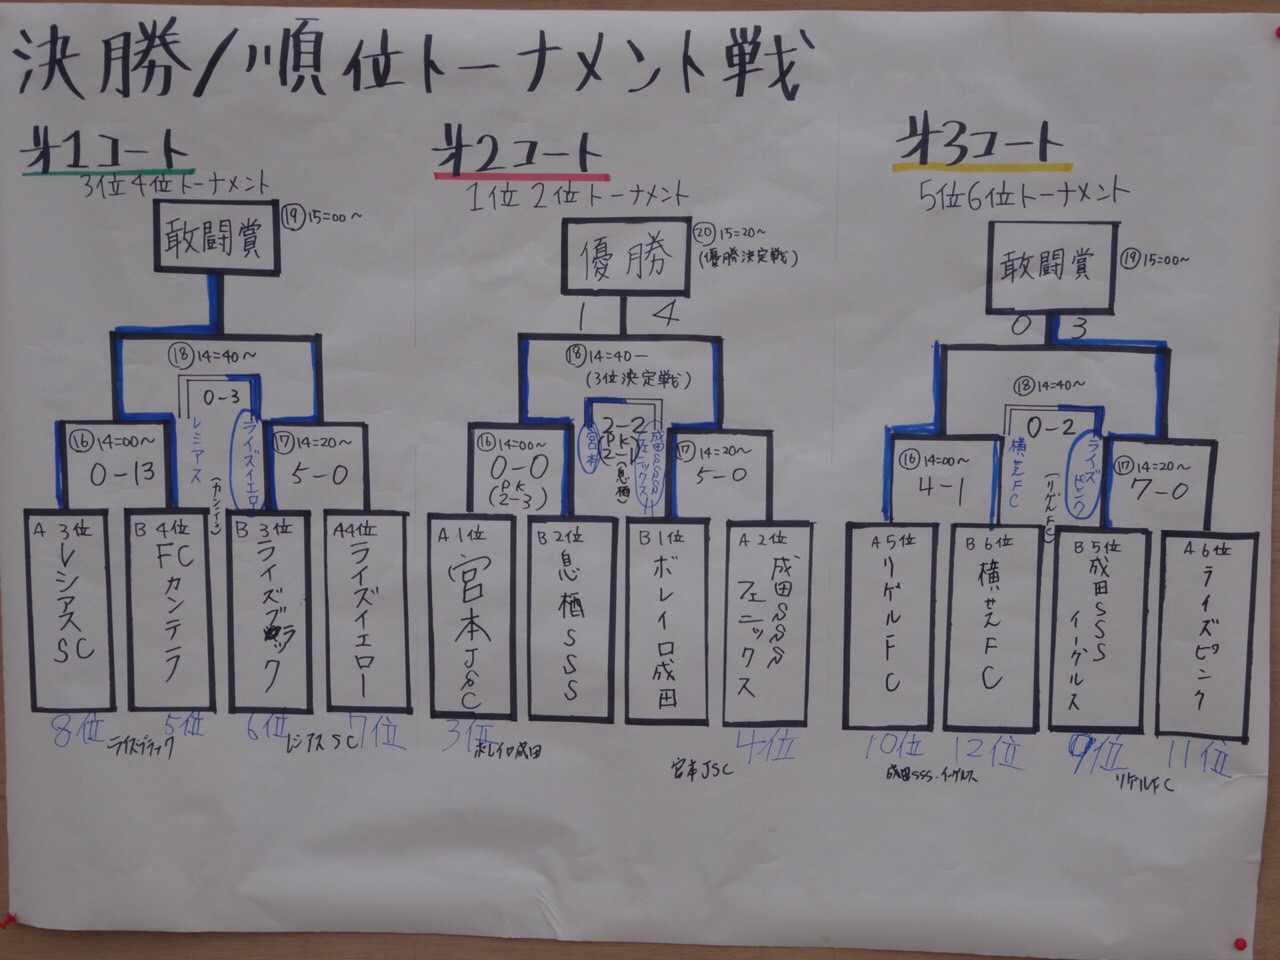 決勝/順位トーナメント戦
才1コート
3位4位トーナメント
敢闘賞
⑲15=00~
⑱14=40~
0-3
レシアス
ライズイエロー
⑯14=00~
0-13
⑰14=20~
5-0
A 3位
レシアスSC
B 4位
FCカンテラ
B 3位
ライズブラック
A4位
ライズイエロー
8位
5位
6位
7位
ライズブラック
レシアスSC
才2コート
1位2位トーナメント
優勝
⑳15=20~
(優勝決定戦)
1 4
⑱14=40-
(3位決定戦)
2-2
(PK
2-1)
宮本
成田SSS
フェニックス
(息栖)
⑯14=00~
0-0
(PK
2-3)
⑰14=20~
5-0
A1位
宮本JSC
B2位
息栖SSS
B1位
ボレイロ成田
A2位
成田SSS
フェニックス
3位
4位
ボレイロ成田
宮本JSC
才3コート
5位6位トーナメント
敢闘賞
⑲15=00~
0 3
⑱14=40~
0-2
横ぜんFC
ライズピンク
(リゲルFC)
⑯14=00~
4-1
⑰14=20~
7-0
A5位
リゲルFC
B6位
B5位
成田SSS
イーグルス
A6位
ライズピンク
10位
12位
9位
11位
成田SSS・イーグルス
リゲルFC